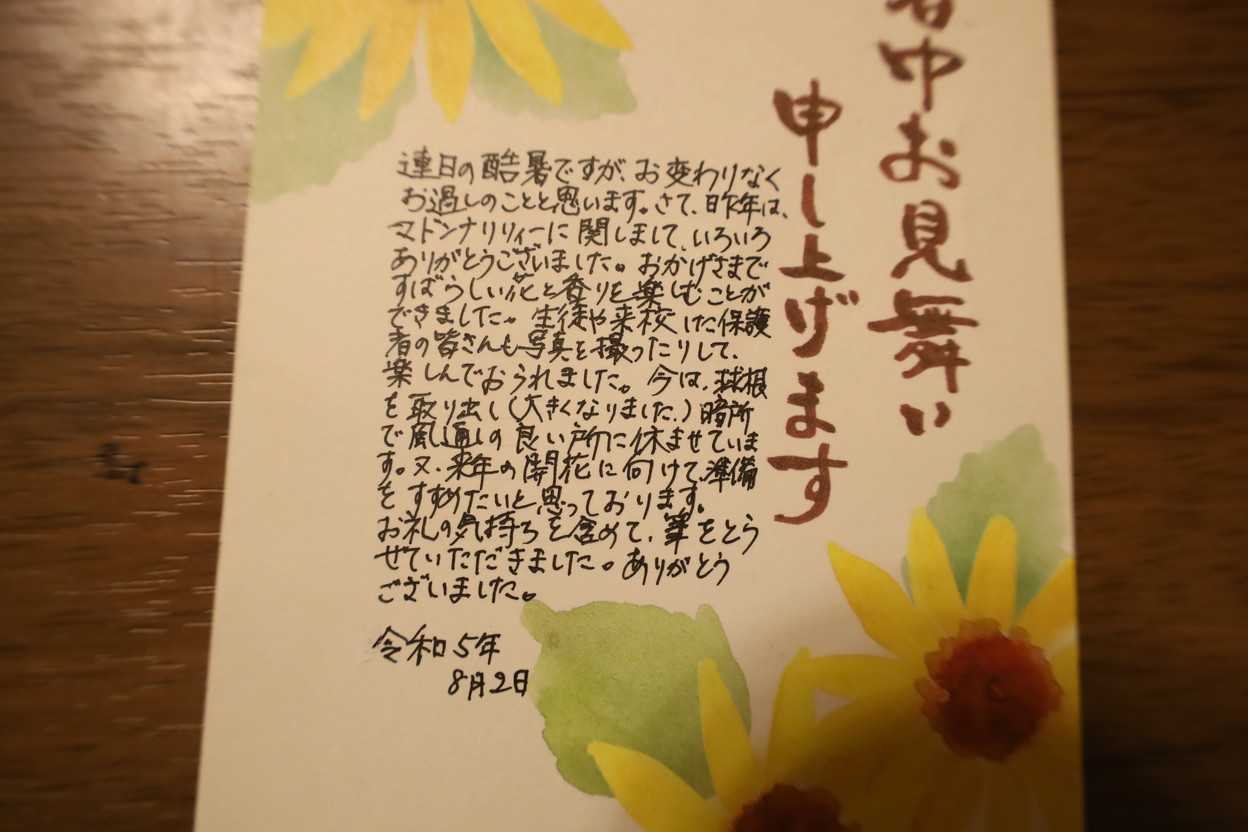 暑中お見舞い
申し上げます
連日の酷暑ですが、お変わりなく
お過しのことと思います。さて、昨年は、
マドンナリリィーに関しまして、いろいろ
ありがとうございました。おかげさまで
すばらしい花と香りを楽しむことが
できました。生徒や来校した保護
者の皆さんも写真を撮ったりして、
楽しんでおられました。今は、球根
を取り出し(大きくなりました。)暗所
で風通しの良い所に休ませていま
す。又、来年の開花に向けて、準備
をすすめたいと思っております。
お礼の気持ちを含めて、筆をとら
せていただきました。ありがとう
ございました。
令和5年
8月2日